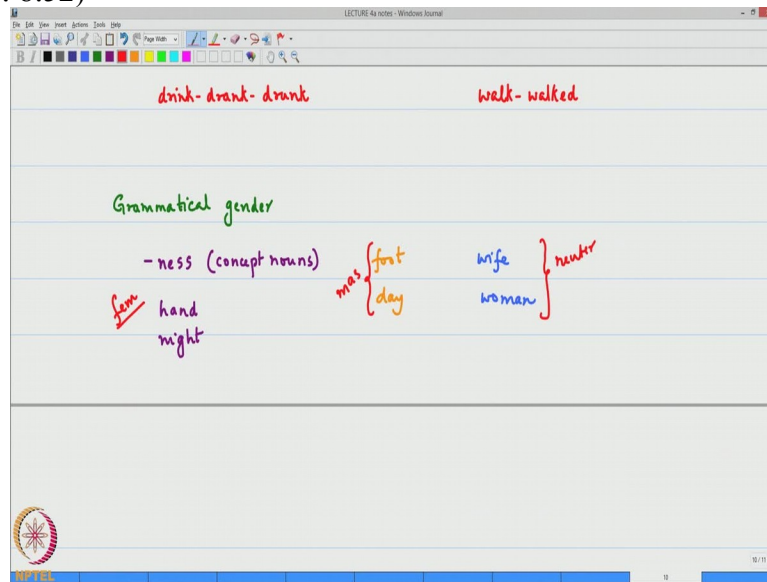 : 6:52)
LECTURE 4a notes - Windows Journal
File Edit View Insert Actions Tools Help
Page Width
B I
drink - drank - drunk walk - walked
Grammatical gender
- ness (concept nouns) mas foot wife neuter
fem hand day woman
night
NPTEL
10 / 11
10